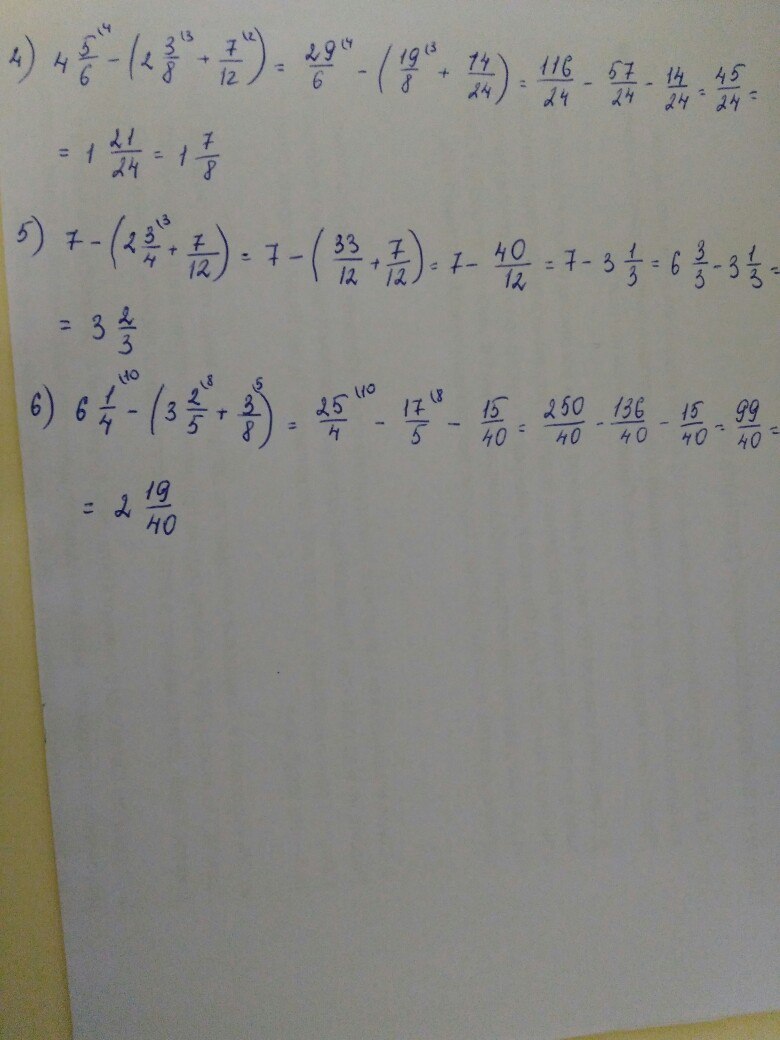 4) 4 5/6 \4 - (2 3/8 \3 + 7/12 \2) = 29/6 \4 - (19/8 \3 + 14/24) = 116/24 - 57/24 - 14/24 = 45/24 =
= 1 21/24 = 1 7/8
5) 7 - (2 3/4 \3 + 7/12) = 7 - (33/12 + 7/12) = 7 - 40/12 = 7 - 3 1/3 = 6 3/3 - 3 1/3 =
= 3 2/3
6) 6 1/4 \10 - (3 2/5 \8 + 3/8 \5) = 25/4 \10 - 17/5 \8 - 15/40 = 250/40 - 136/40 - 15/40 = 99/40 =
= 2 19/40